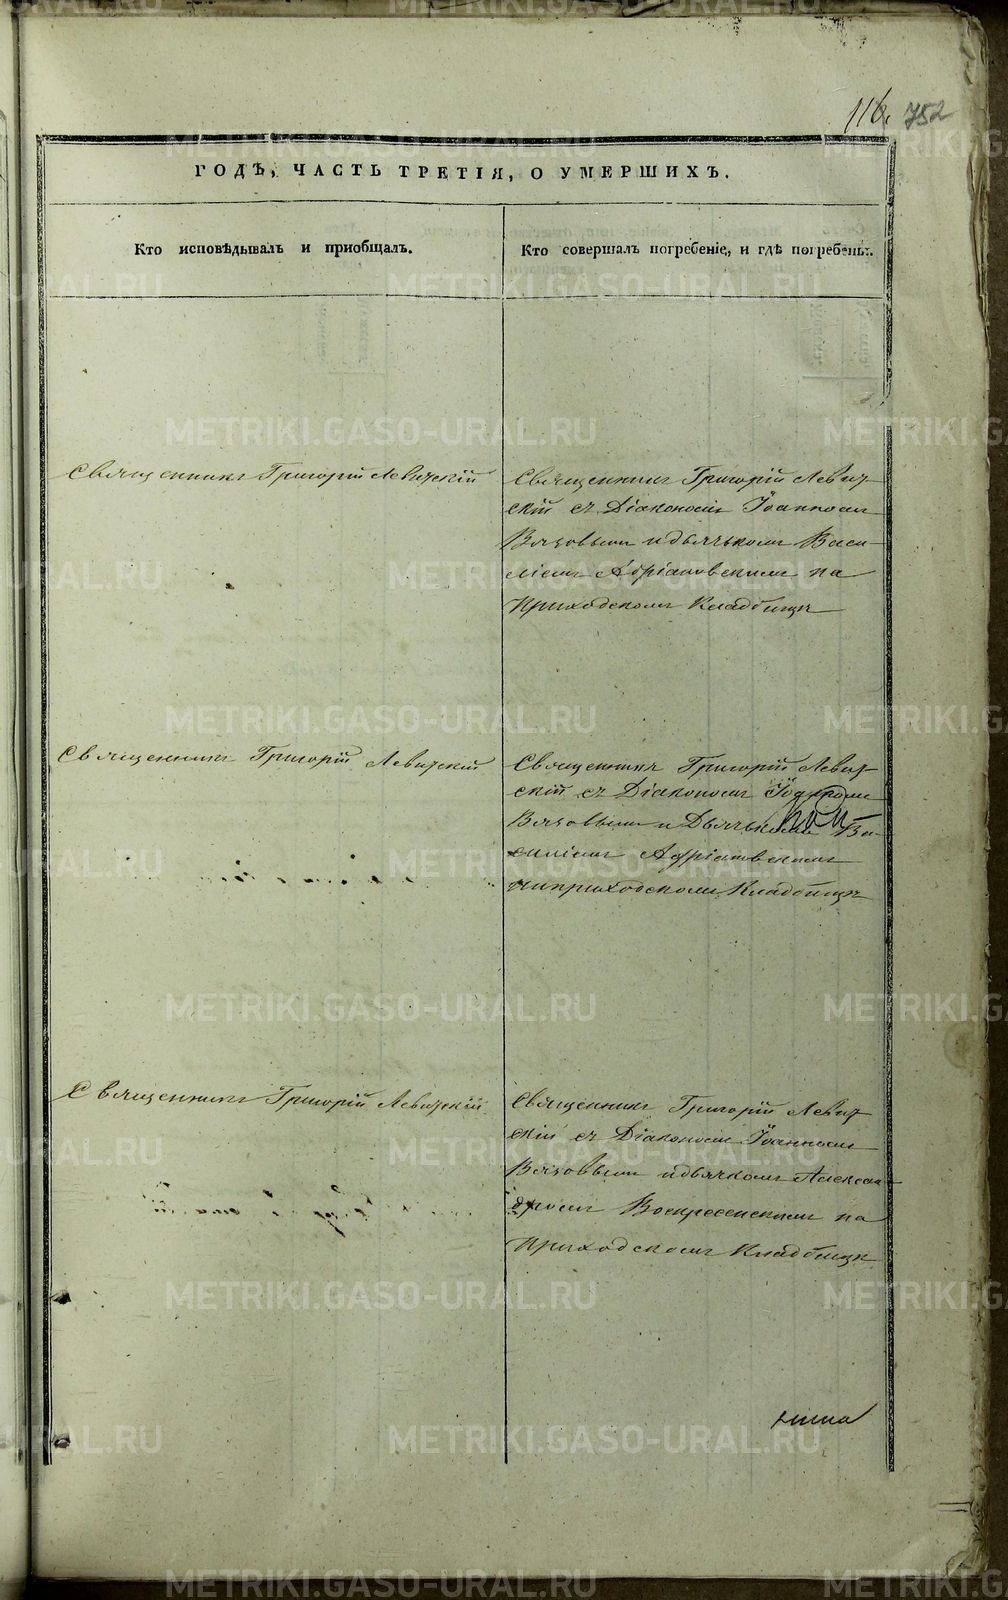 116. 752
ГОДѢ, ЧАСТЬ ТРЕТІЯ, О УМЕРШИХЪ.
Кто исповѣдывалъ и приобщалъ.
Кто совершалъ погребеніе, и гдѣ погребены.
Священникъ Григорій Левитскій
Священникъ Григорій Левит-
скій съ Діакономъ Іоанномъ
Вязовымъ и дьячькомъ Васи-
ліемъ Адріановскимъ на
Приходскомъ Кладбищѣ
Священникъ Григорій Левитскій
Священникъ Григорій Левит-
скій съ Діакономъ
Вязовымъ и Дьячькомъ Ва-
силіемъ Адріановскимъ
на приходскомъ Кладбищѣ
Священникъ Григорій Левитскій
Священникъ Григорій Левит-
скій съ Діакономъ Іоанномъ
Вязовымъ и дьячкомъ Алексан-
дромъ Воскресенскимъ на
Приходскомъ Кладбищѣ
METRIKI.GASO-URAL.RU